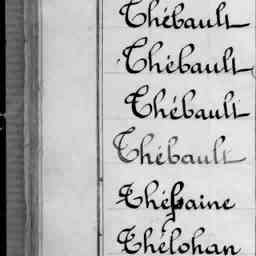 Thébault
Thébault
Thébault
Thébault
Thélohan